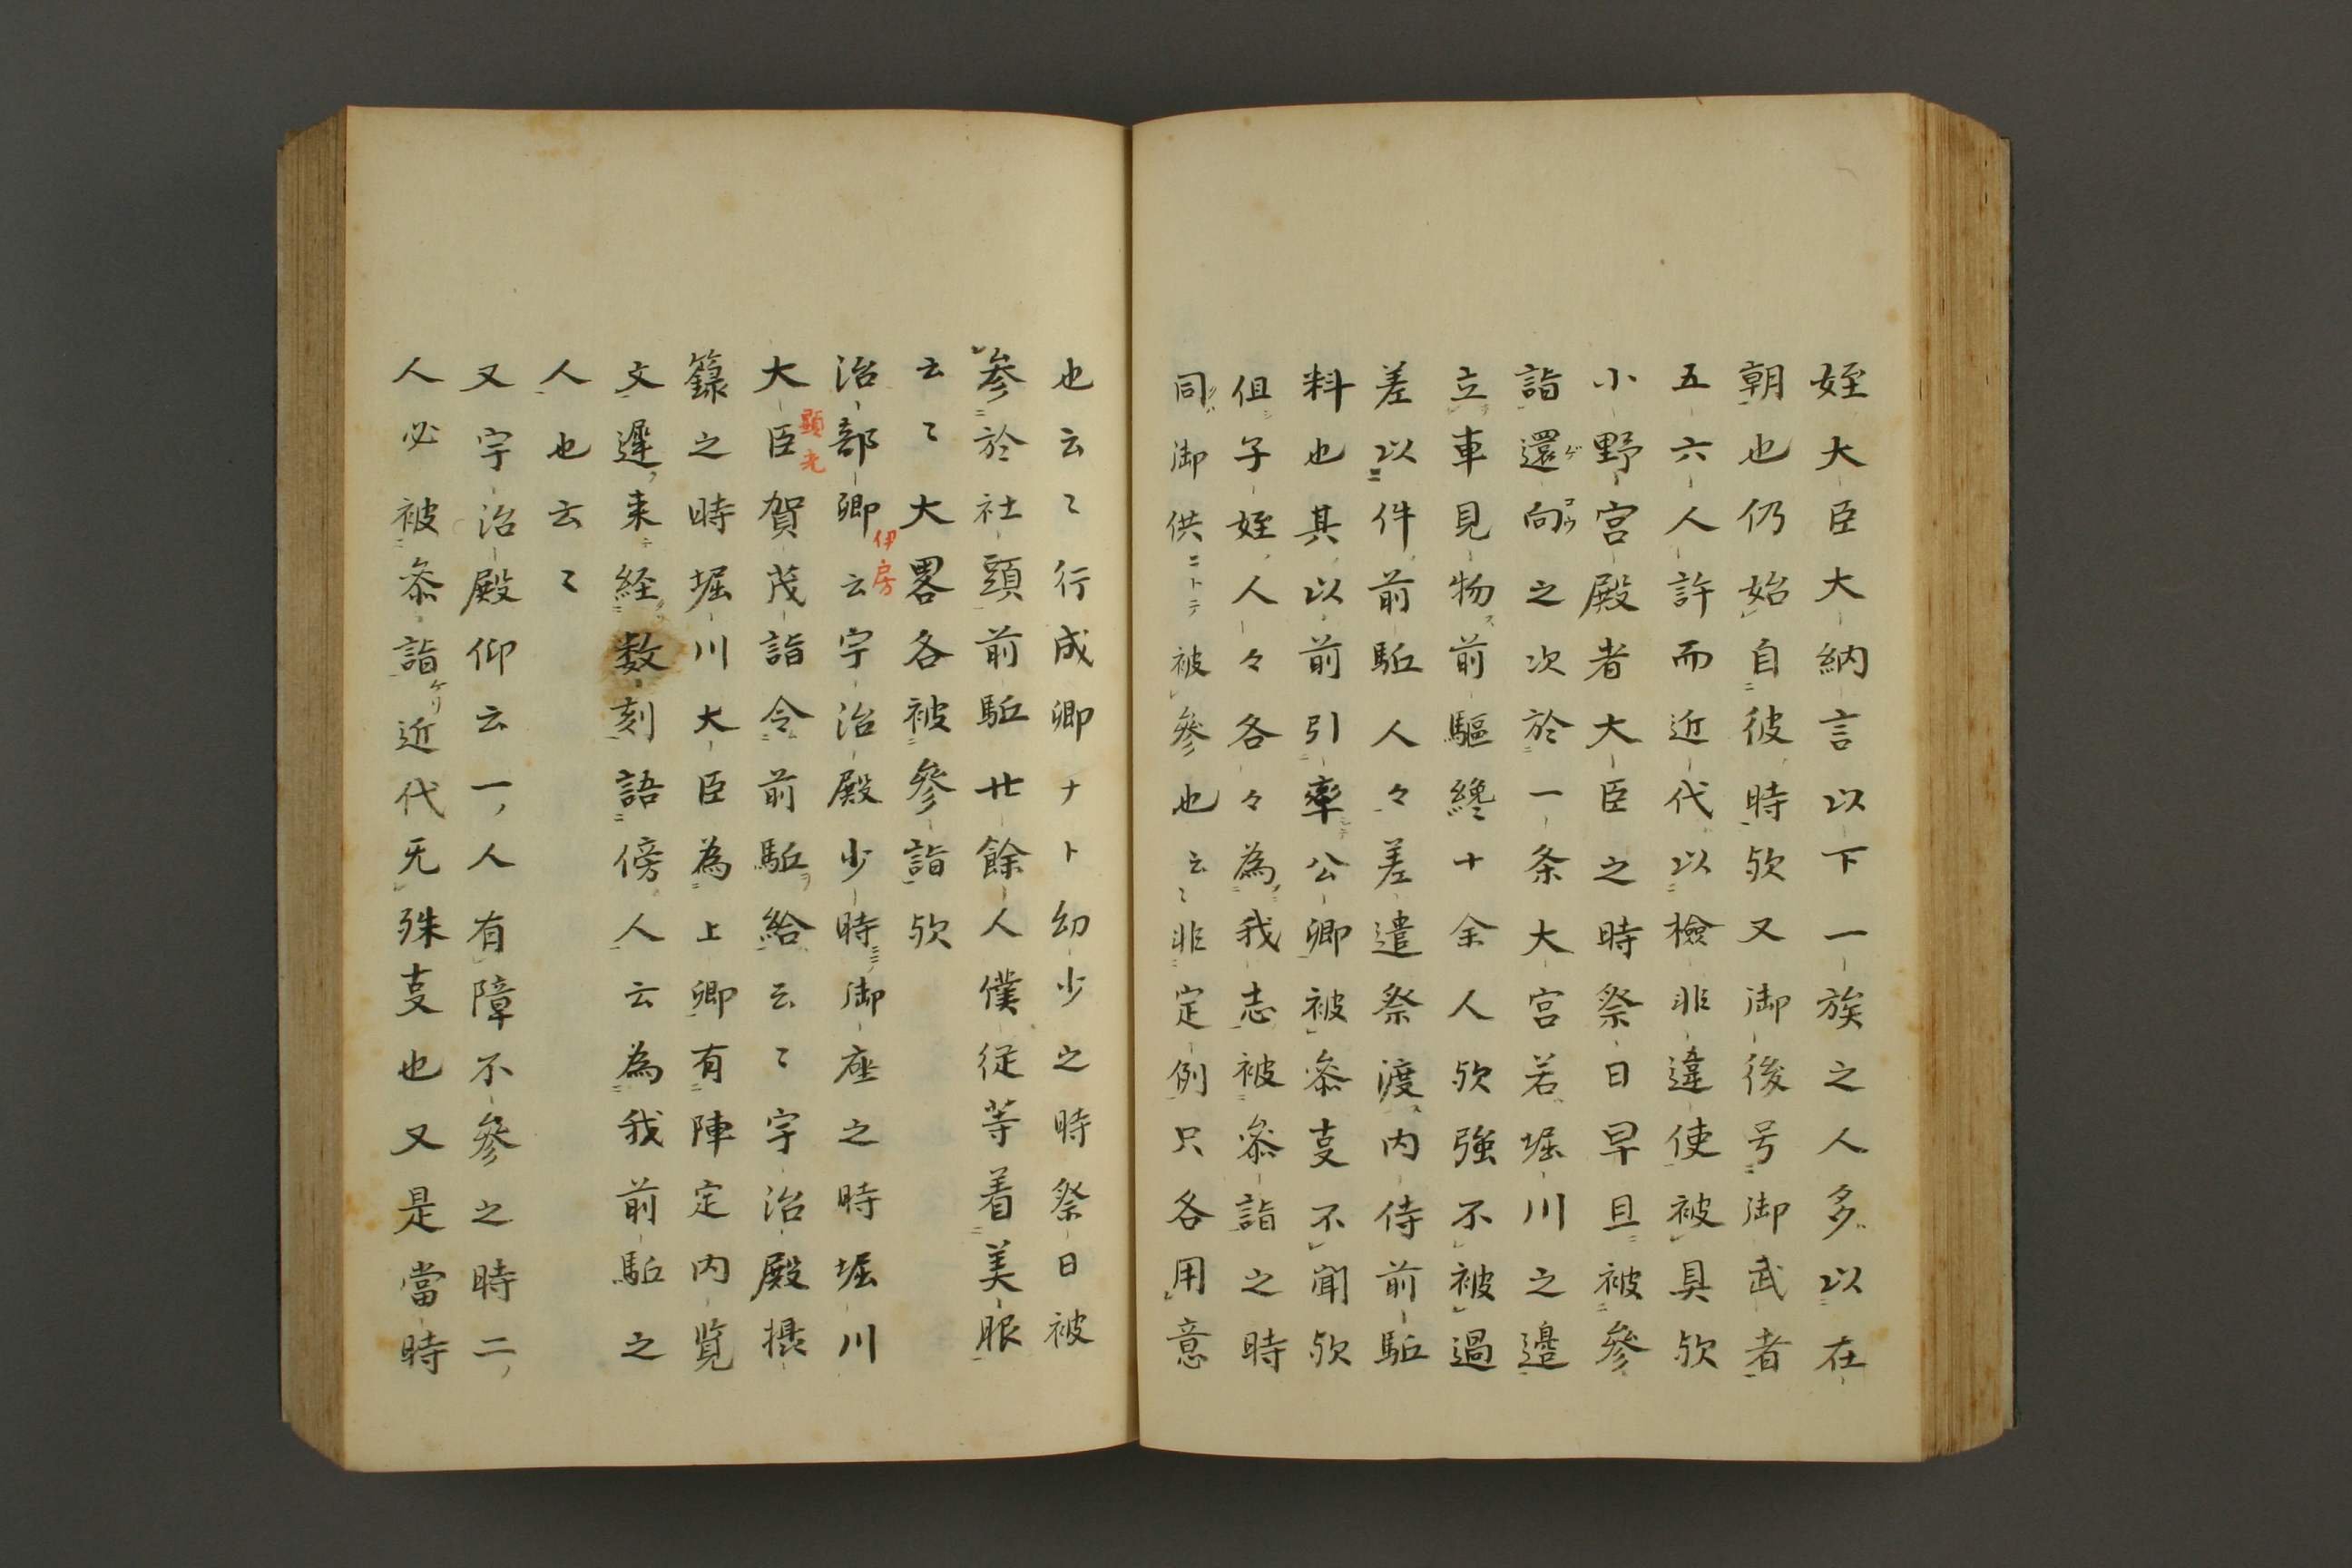 姪大臣大納言以下一族之人多以在
朝也仍始自彼時欤又御後号御武者
五六人許而近代以檢非違使被具欤
小野宮殿者大臣之時祭日早旦被參
詣還向之次於一条大宮若堀川之邊
立車見物前驅纔十余人欤強不被過
差以件前駈人々差遣祭渡内侍前駈
料也其以前引率公卿被参叓不聞欤
但子姪人々各々為我志被参詣之時
同御供ニトテ被參也云々非定例只各用意
也云々行成卿ナト幼少之時祭日被
参於社頭前駈廿餘人僕従等着美服
云々大畧各被參詣欤
治部卿伊房云宇治殿少時御座之時堀川
大臣顕光賀茂詣令前駈給云々宇治殿摂
籙之時堀川大臣為上卿有陣定内覧
文遅来経数刻語傍人云為我前駈之
人也云々
又宇治殿仰云一人有障不參之時二
人必被参詣ケリ近代无殊叓也又是當時